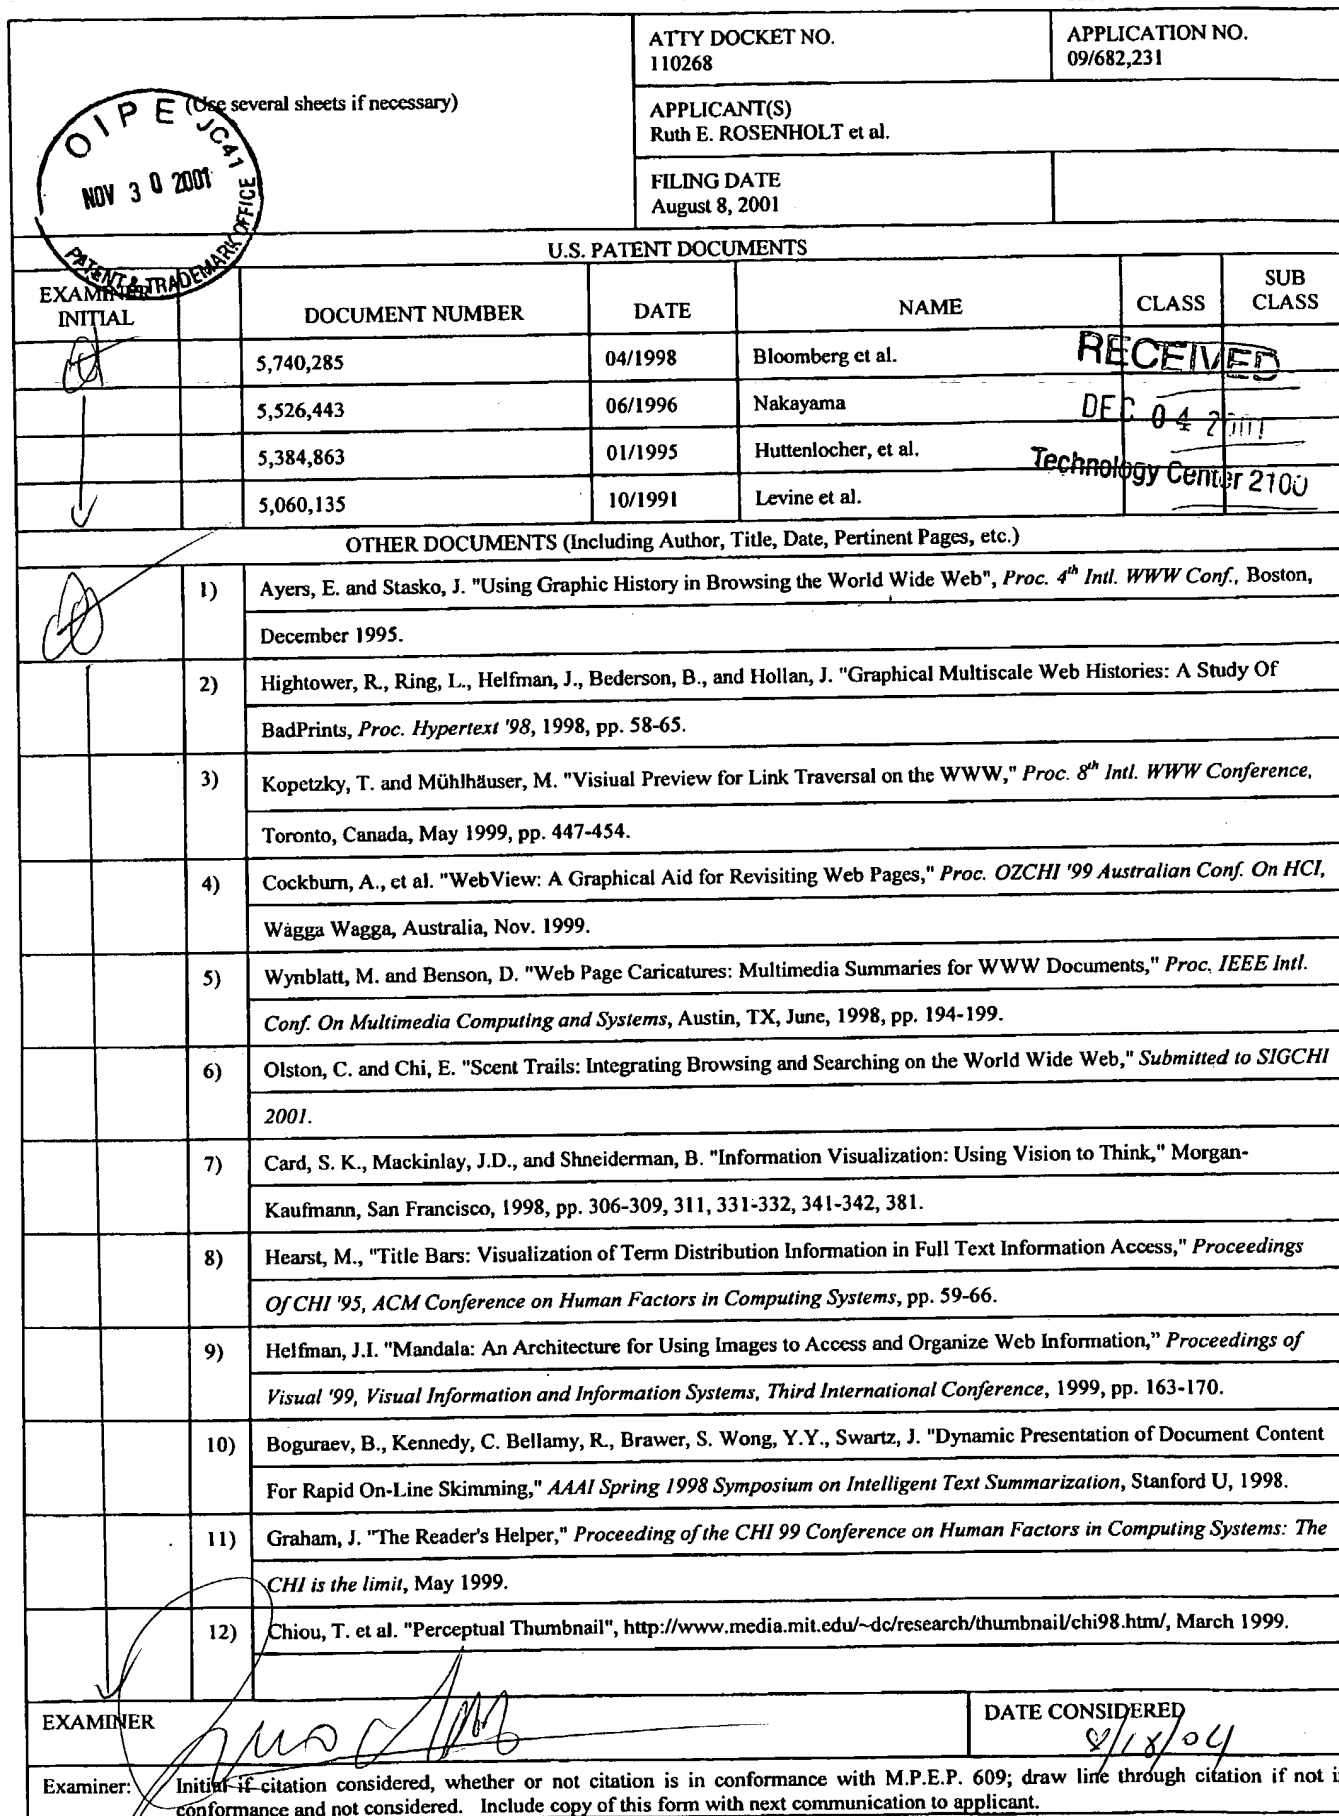 ATTY DOCKET NO.
110268
APPLICATION NO.
09/682,231
(Use several sheets if necessary)
APPLICANT(S)
Ruth E. ROSENHOLT et al.
OIPE JC41
NOV 30 2001
PATENT & TRADEMARK OFFICE
FILING DATE
August 8, 2001
U.S. PATENT DOCUMENTS
EXAMINER INITIAL
DOCUMENT NUMBER
DATE
NAME
CLASS
SUB CLASS
5,740,285 04/1998 Bloomberg et al.
5,526,443 06/1996 Nakayama
5,384,863 01/1995 Huttenlocher, et al.
5,060,135 10/1991 Levine et al.
RECEIVED
DEC 04 2001
Technology Center 2100
OTHER DOCUMENTS (Including Author, Title, Date, Pertinent Pages, etc.)
1) Ayers, E. and Stasko, J. "Using Graphic History in Browsing the World Wide Web", Proc. 4th Intl. WWW Conf., Boston,
December 1995.
2) Hightower, R., Ring, L., Helfman, J., Bederson, B., and Hollan, J. "Graphical Multiscale Web Histories: A Study Of
BadPrints, Proc. Hypertext '98, 1998, pp. 58-65.
3) Kopetzky, T. and Mühlhäuser, M. "Visiual Preview for Link Traversal on the WWW," Proc. 8th Intl. WWW Conference,
Toronto, Canada, May 1999, pp. 447-454.
4) Cockburn, A., et al. "WebView: A Graphical Aid for Revisiting Web Pages," Proc. OZCHI '99 Australian Conf. On HCI,
Wagga Wagga, Australia, Nov. 1999.
5) Wynblatt, M. and Benson, D. "Web Page Caricatures: Multimedia Summaries for WWW Documents," Proc. IEEE Intl.
Conf. On Multimedia Computing and Systems, Austin, TX, June, 1998, pp. 194-199.
6) Olston, C. and Chi, E. "Scent Trails: Integrating Browsing and Searching on the World Wide Web," Submitted to SIGCHI
2001.
7) Card, S. K., Mackinlay, J.D., and Shneiderman, B. "Information Visualization: Using Vision to Think," Morgan-
Kaufmann, San Francisco, 1998, pp. 306-309, 311, 331-332, 341-342, 381.
8) Hearst, M., "Title Bars: Visualization of Term Distribution Information in Full Text Information Access," Proceedings
Of CHI '95, ACM Conference on Human Factors in Computing Systems, pp. 59-66.
9) Helfman, J.I. "Mandala: An Architecture for Using Images to Access and Organize Web Information," Proceedings of
Visual '99, Visual Information and Information Systems, Third International Conference, 1999, pp. 163-170.
10) Boguraev, B., Kennedy, C. Bellamy, R., Brawer, S. Wong, Y.Y., Swartz, J. "Dynamic Presentation of Document Content
For Rapid On-Line Skimming," AAAI Spring 1998 Symposium on Intelligent Text Summarization, Stanford U, 1998.
11) Graham, J. "The Reader's Helper," Proceeding of the CHI 99 Conference on Human Factors in Computing Systems: The
CHI is the limit, May 1999.
12) Chiou, T. et al. "Perceptual Thumbnail", http://www.media.mit.edu/~dc/research/thumbnail/chi98.htm/, March 1999.
EXAMINER
DATE CONSIDERED
8/18/04
Examiner: Initial if citation considered, whether or not citation is in conformance with M.P.E.P. 609; draw line through citation if not i
conformance and not considered. Include copy of this form with next communication to applicant.